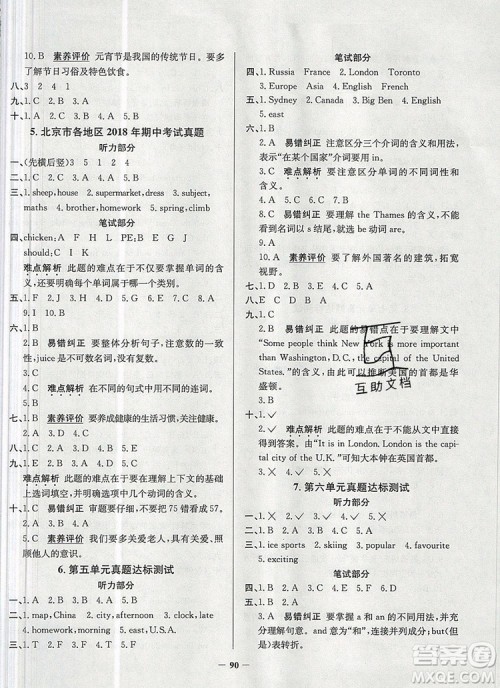 10. B 素养评价 元宵节是我国的传统节日。要多
了解节日习俗及特色饮食。
八、3 2 4 1
九、1. C 2. B 3. A
十、1. A 2. B 3. A 4. C 5. C
5. 北京市各地区 2018 年期中考试真题
听力部分
一、(先横后竖)3 5 1 2 4
三、1. sheep, house 2. supermarket, dress 3. subject,
maths 4. brother, homework 5. spring, climb
笔试部分
四、chicken: A F H L PE: D G J K
should: C E I B
难点解析 此题的难点在于不仅要掌握单词的含
义,还要理解每个词的类别。
五、1. F 2. G 3. E 4. C 5. H 6. D 7. A 8. J
9. I 10. B
六、1. B 易错纠正 要整体分析句子,注意数的一致
性,juice 是不可数名词。
2. A 3. B 4. C 5. C 6. A 7. A 8. B
9. C 难点解析 在不同的句式中用不同的连词。
10. B 素养评价 要养成健康的生活习惯,关注健康。
七、1. C 2. B 3. A
八、1. D 2. A 3. E 4. B 5. C
九、1. C 2. A 3. C 4. B 5. A
难点解析 此题的难点在于要在理解上下文的基础
上选词填空,并且要掌握每个动词的含义。
十、1. C 易错纠正 审题要仔细,不要把 75 错看成 57。
2. A 3. A 4. C 素养评价 我们要多关爱老人,关心、照
顾他人的意识。
6. 第五单元真题达标测试
听力部分
一、1. A 2. B 3. A 4. C 5. C
二、1. map, China 2. city, afternoon 3. clock, late
4. homework, morning 5. east, U.S.A.
三、1. B 2. A 3. B 4. A 5. C
笔试部分
四、1. Russia France 2. London Toronto
3. Europe Asia 4. English French
五、1. Sydney 2. Canada 3. Big Ben 4. English
5. east
六、1. B 易错纠正 注意区分三个介词的含义和用法,
表示“在某个国家”介词要用 in。
2. B 3. C 难点解析 注意区分单词的不同词性和
词义。
4. A 5. C 6. C 7. C
8. B 易错纠正 要理解 the Thames 的含义,不能
看到名词以 s 结尾,就当复数用。
9. A
10. A 素养评价 要了解外国著名的建筑,拓宽
视野。
七、E C D B A
八、1. C
2. B 易错纠正 此题的易错点在于要理解文中
“Some people think New York is more important
than Washington, D.C., the capital of the United
States.”的含义,由此可以推断美国的首都是华
盛顿。
十、1. ✓
2. ✓ 难点解析 此题的难点在于不能从文中直接
得到答案。由“It is in London. London is the capi-
tal city of the U.K.”可知,大本钟在英国的首都。
3. ✓
互助文档
7. 第六单元真题达标测试
听力部分
一、1. ✗ 2. ✓ 3. ✗ 4. ✓ 5. ✗
三、1. ice sports 2. skiing 3. popular 4. also
5. exciting
笔试部分
四、1. D 2. A 3. E 4. B 5. C
五、1. B 2. A 3. B 4. A 5. C
六、1. B 易错纠正 要掌握 a 和 an 的不同用法,并
分清连词 and 表并列,so(因此)表结果;but(但
是)表转折。
90
答案圈
MXQE.COM